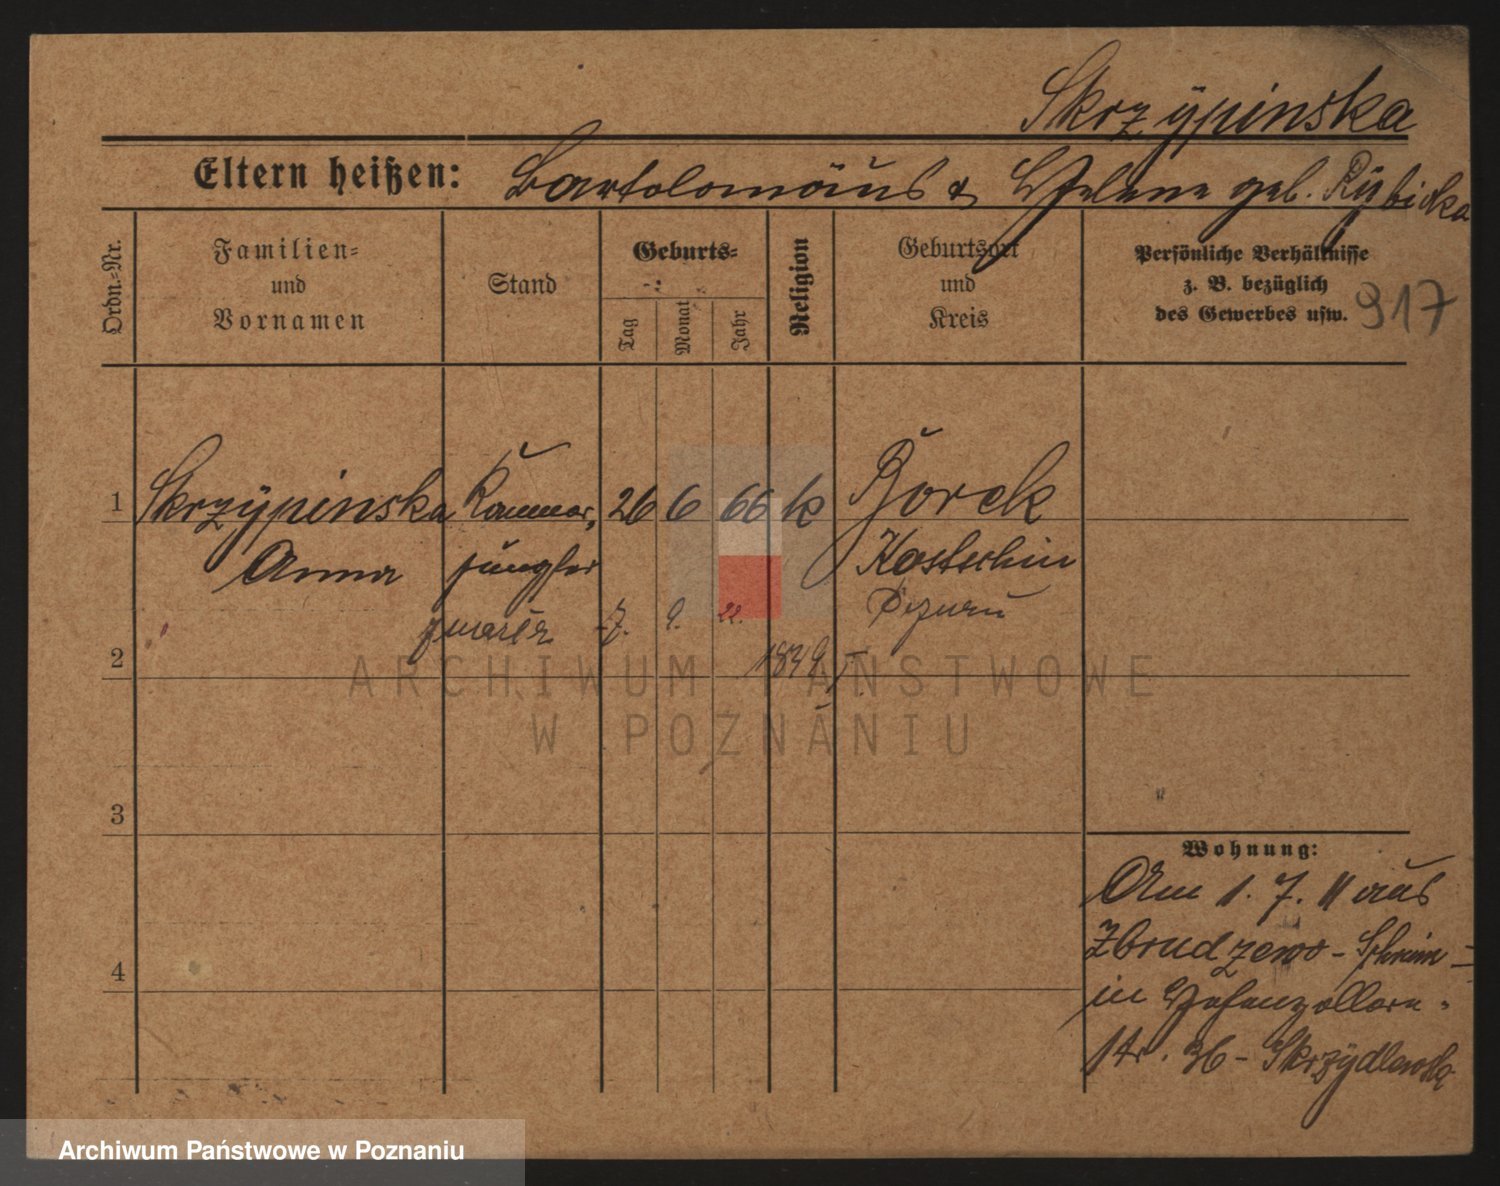 Skrzypinska
Eltern heißen: Bartolomäus & Helene geb. Rybicka
Ordn.-Nr.
Familien-
und
Vornamen
Stand
Geburts-
Tag
Monat
Jahr
Religion
Geburtsort
und
Kreis
Persönliche Verhältnisse
z. B. bezüglich
des Gewerbes usw. 917
1 Skrzypinska Kammer, 26 6 66 k Borek
Anna jungfer Kostschin
7. 9. 22.
2 1849
3
4
Wohnung:
Am 1. 7. 11 aus
Zbrudzewo - Schrim -
in Hohenzollern-
str. 36 - Skrzydlewska
ARCHIWUM PAŃSTWOWE
W POZNANIU
Archiwum Państwowe w Poznaniu